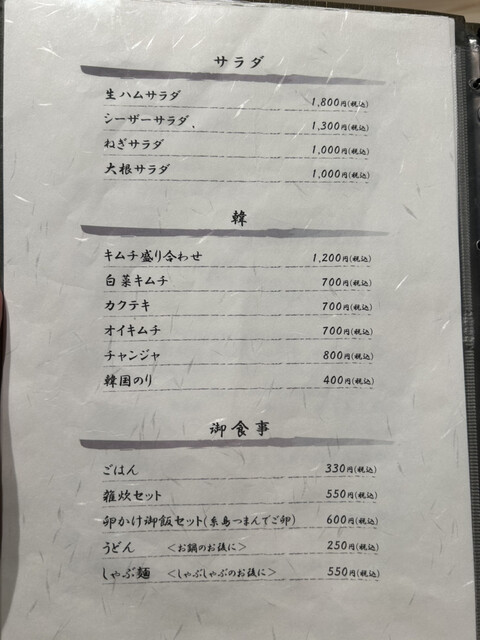 サラダ
生ハムサラダ 1,800円(税込)
シーザーサラダ、 1,300円(税込)
ねぎサラダ 1,000円(税込)
大根サラダ 1,000円(税込)
韓
キムチ盛り合わせ 1,200円(税込)
白菜キムチ 700円(税込)
カクテキ 700円(税込)
オイキムチ 700円(税込)
チャンジャ 800円(税込)
韓国のり 400円(税込)
御食事
ごはん 330円(税込)
雑炊セット 550円(税込)
卵かけ御飯セット(糸島つまんでご卵) 600円(税込)
うどん <お鍋のお後に> 250円(税込)
しゃぶ麺 <しゃぶしゃぶのお後に> 550円(税込)